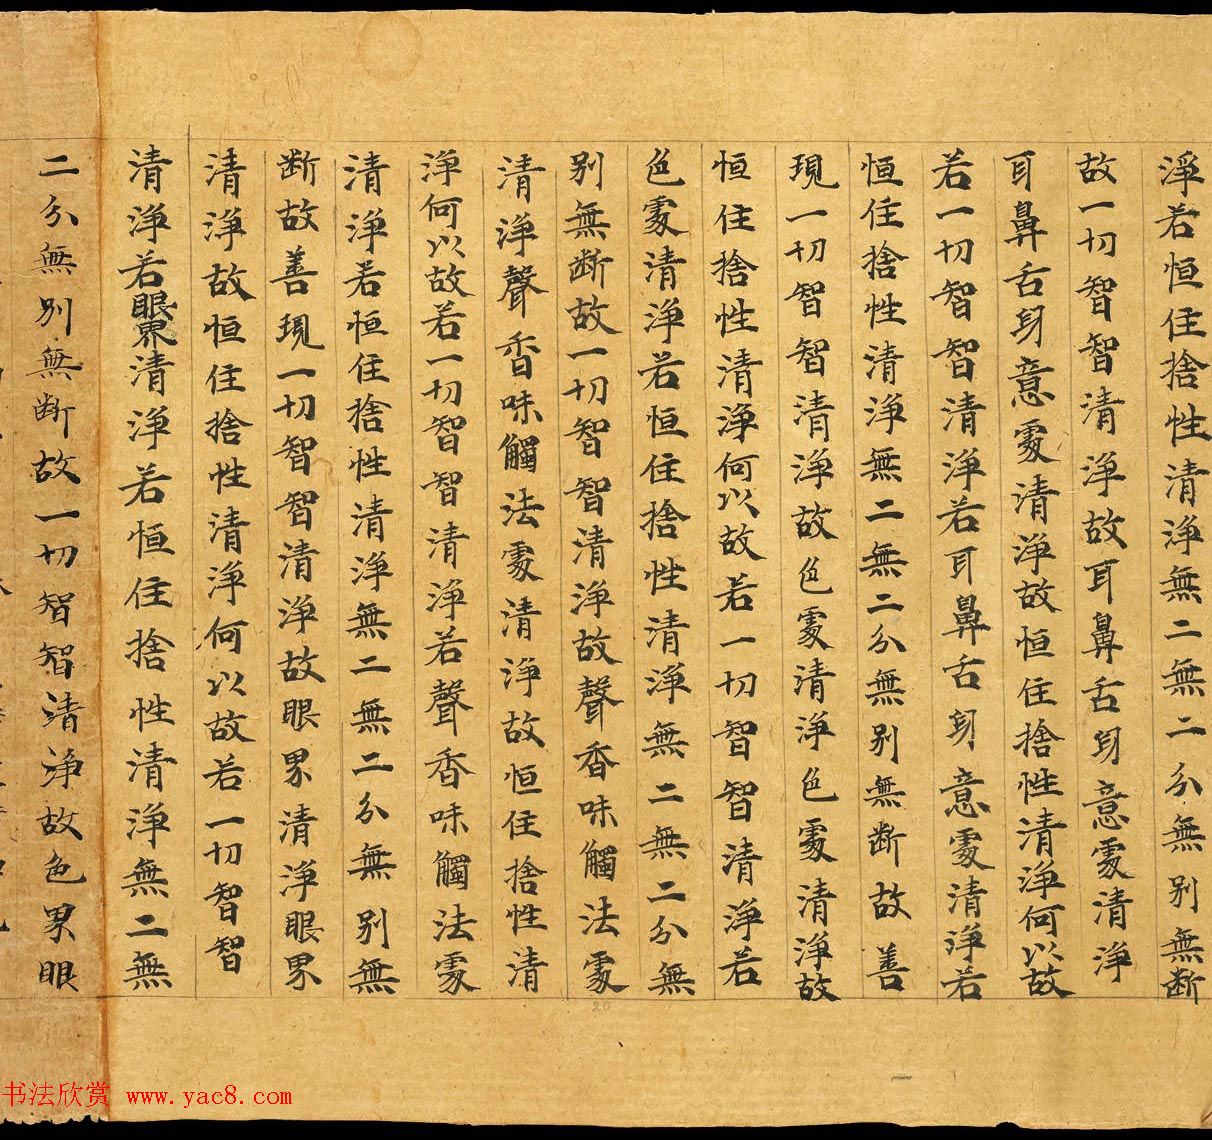 淨若恒住捨性清淨無二無二分無別無断
故一切智智清淨故耳鼻舌身意處清淨
耳鼻舌身意處清淨故恒住捨性清淨何以故
若一切智智清淨若耳鼻舌身意處清淨若
恒住捨性清淨無二無二分無別無断故善
現一切智智清淨故色處清淨色處清淨故
恒住捨性清淨何以故若一切智智清淨若
色處清淨若恒住捨性清淨無二無二分無
別無断故一切智智清淨故聲香味觸法處
清淨聲香味觸法處清淨故恒住捨性清
淨何以故若一切智智清淨若聲香味觸法處
清淨若恒住捨性清淨無二無二分無別無
断故善現一切智智清淨故眼界清淨眼界
清淨故恒住捨性清淨何以故若一切智智
清淨若眼界清淨若恒住捨性清淨無二無
二分無別無断故一切智智清淨故色界眼
书法欣赏 www.yac8.com